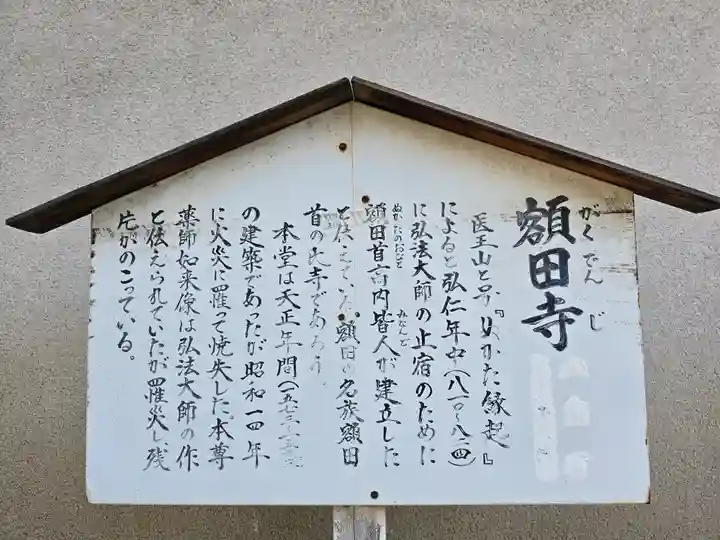 額田寺
がくでんじ
医王山と号『ぬかた縁起』
によると弘仁年中(八一〇〜八二四)
に弘法大師の止宿のために
額田首高内皆人が建立した
ぬかたのおびと
みなんど
と伝えている。額田の名族額田
首の氏寺であろう。
本堂は天正年間(一五七三
の建築であったが昭和一四年
に火災に罹って焼失した。本尊
薬師如来像は弘法大師の作
と伝えられていたが罹災し残
片がのこっている。